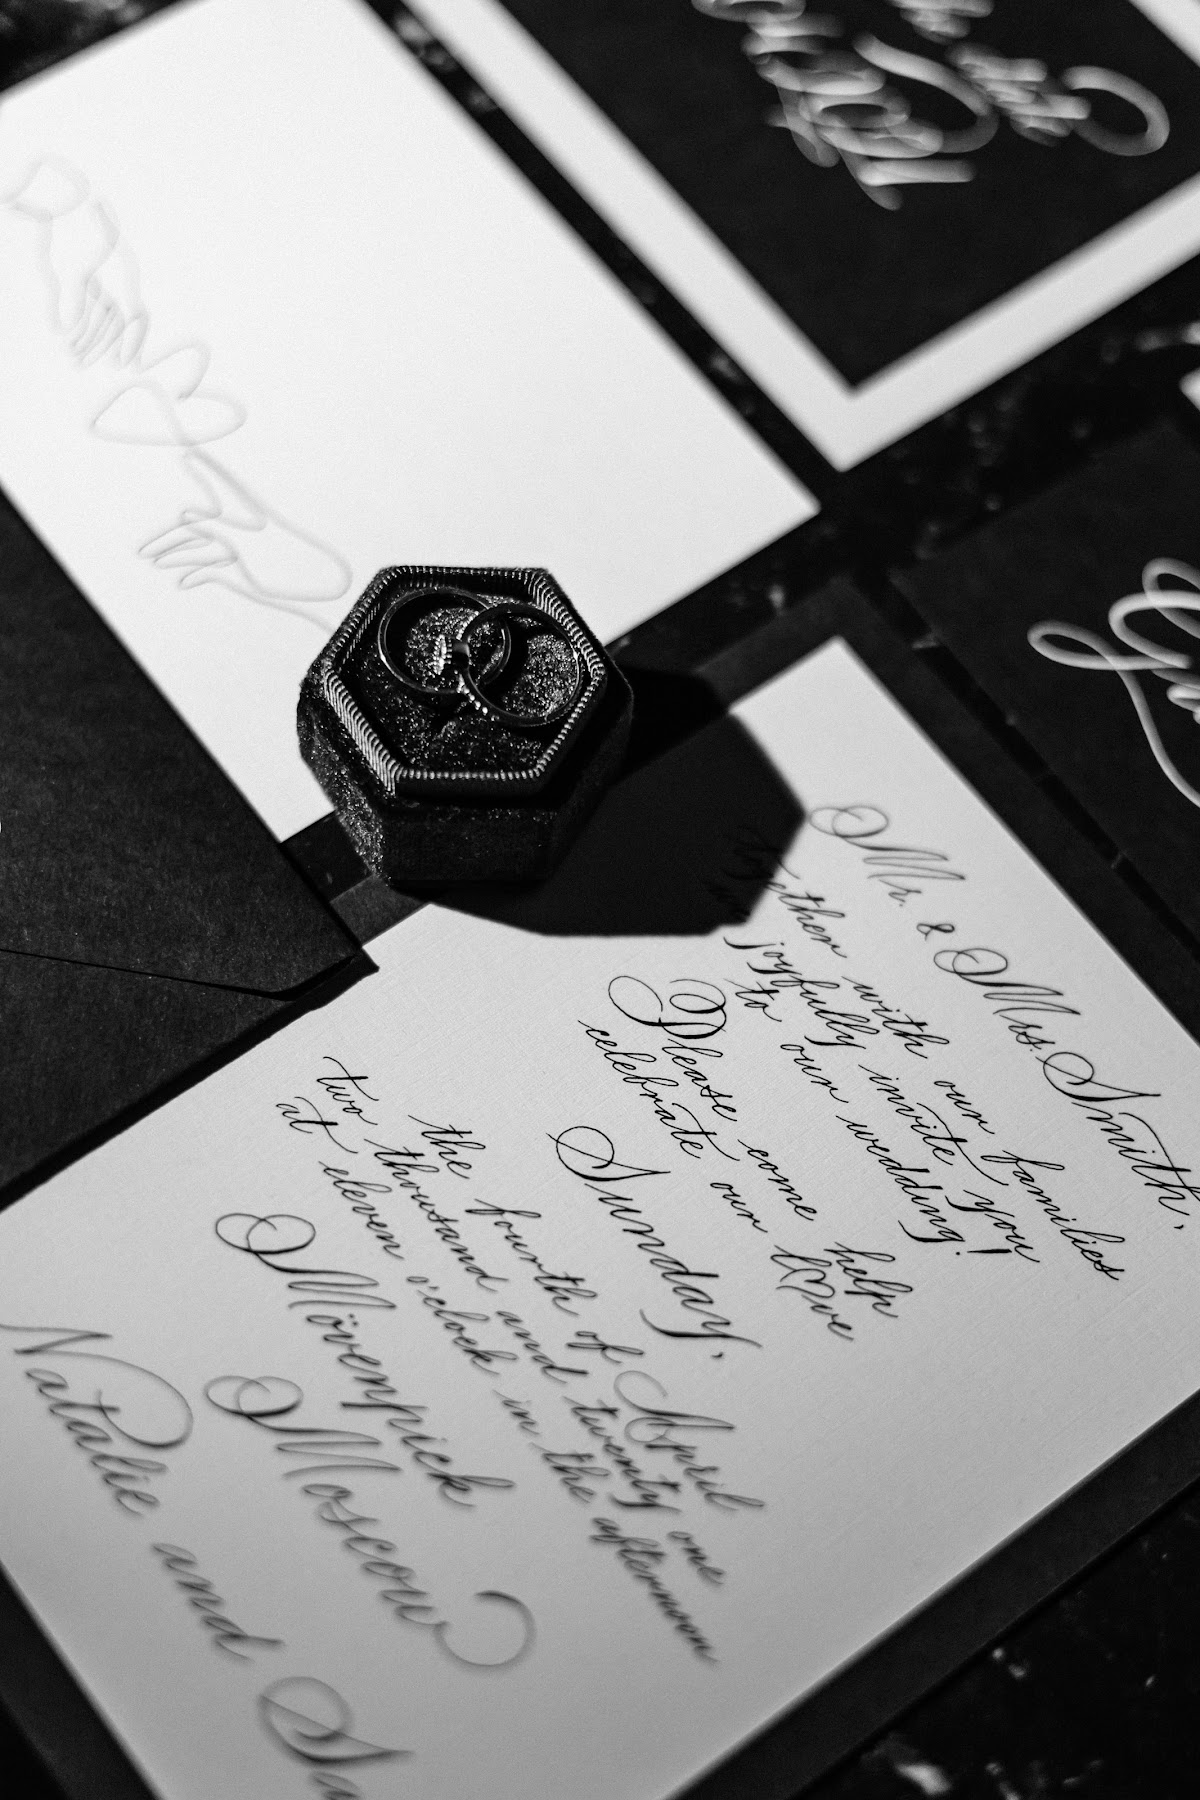 Mr. & Mrs. Smith,
together with our families
joyfully invite you
to our wedding!
Please come help
celebrate our love
Sunday,
the fourth of April
two thousand and twenty one
at eleven o'clock in the afternoon
Mövenpick
Moscow
Natalie and